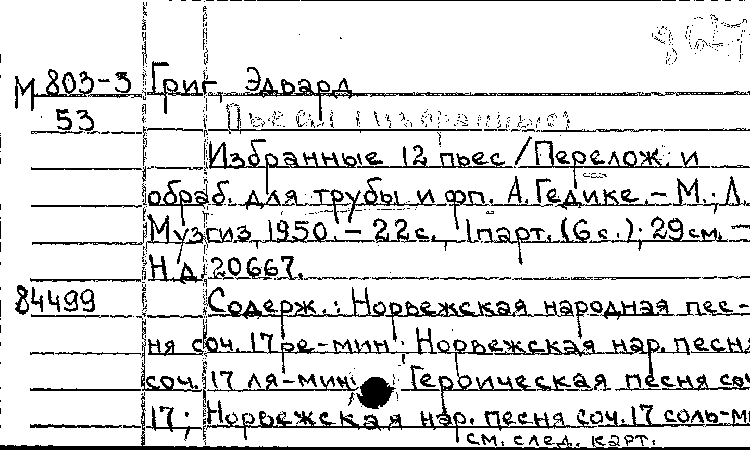 М 803-3 Григ, Эдвард
53 Пьесы (избранные)
Избранные 12 пьес / Перелож. и
обраб. для трубы и фп. А. Гедике. – М.; Л.
Музгиз, 1950. – 22 с., 1 парт. (6 с.); 29 см. –
Н.д. 20667.
84499 Содерж.: Норвежская народная пес-
ня соч. 17 ре-мин; Норвежская нар. песня
соч. 17 ля-мин; Героическая песня соч
17; Норвежская нар. песня соч. 17 соль-ми
см. след. карт.